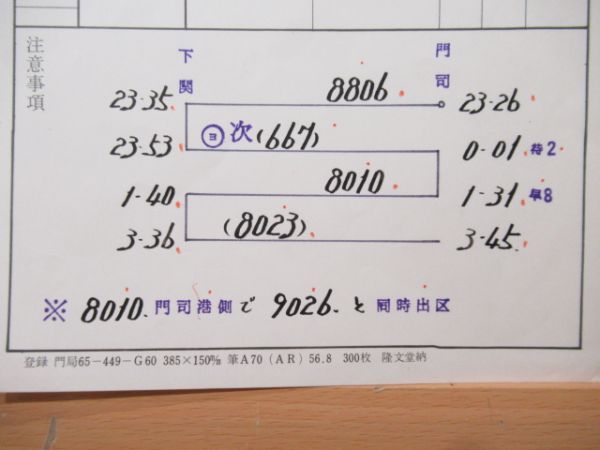 注意事項
下関 門司
8806.
23-35. 23-26.
ヨ 次 (667).
23-53. 0-01. 待2
8010.
1-40. 1-31. 早8
(8023).
3-36. 3-45.
※ 8010. 門司港側で 9026. と 同時出区
登録 門局65-449-G60 385×150㎜ 筆A70 (AR) 56.8 300枚 隆文堂納